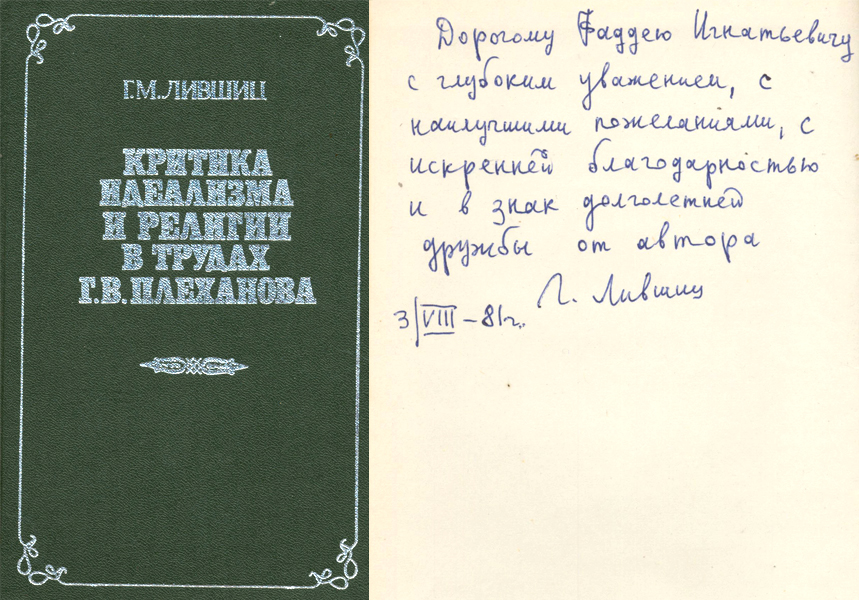 Г.М.ЛИВШИЦ
КРИТИКА
ИДЕАЛИЗМА
И РЕЛИГИИ
В ТРУДАХ
Г.В.ПЛЕХАНОВА
Дорогому Фаддею Игнатьевичу
с глубоким уважением, с
наилучшими пожеланиями, с
искренней благодарностью
и в знак долголетней
дружбы от автора
Г. Лившиц
3/VIII – 81г.